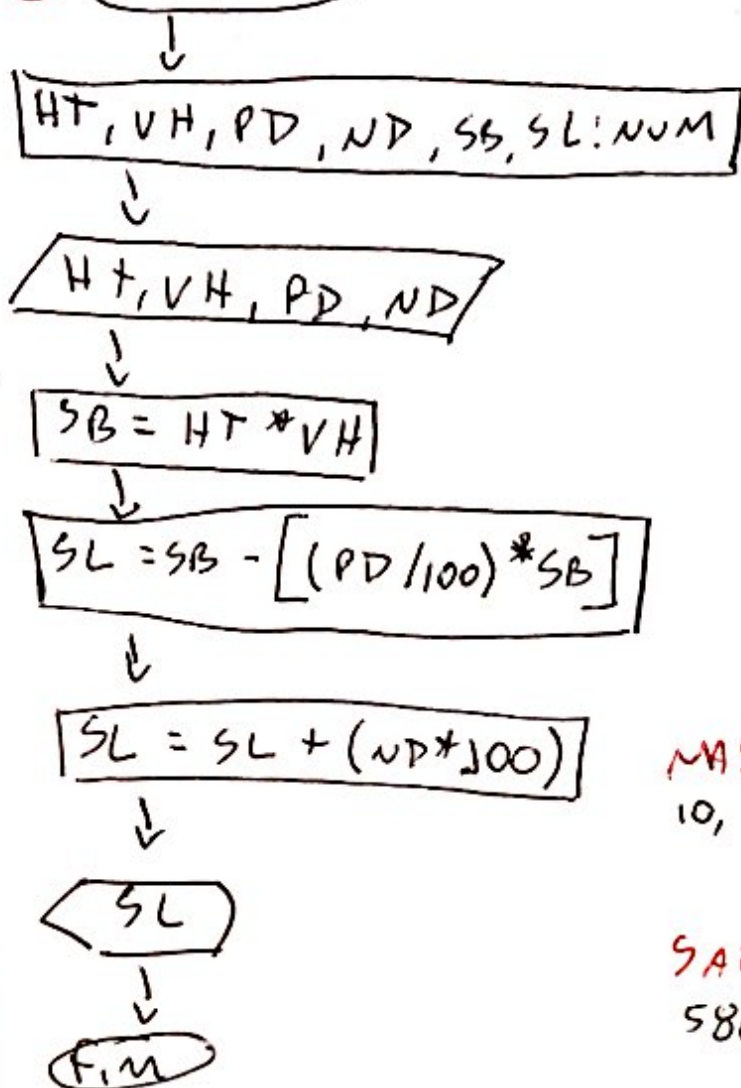 HT, VH, PD, ND, SB, SL: NUM
HT, VH, PD, ND
SB = HT * VH
SL = SB - [(PD/100) * SB]
SL = SL + (ND*100)
10,
SL
Fim